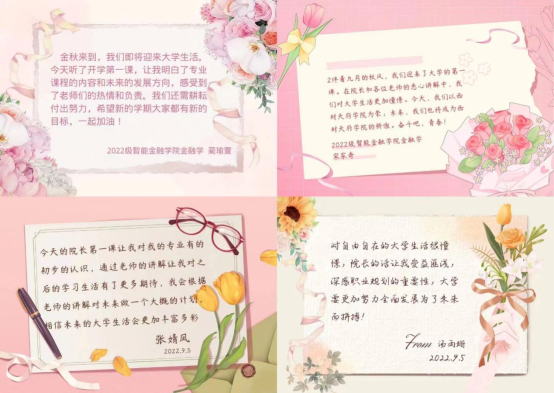 金秋来到，我们即将迎来大学生活。
今天听了开学第一课，让我明白了专业
课程的内容和未来的发展方向，感受到
了老师们的热情和负责。我们还需耕耘
付出努力，希望新的学期大家都有新的
目标，一起加油！
2022级智能金融学院金融学 蔺瑜萱
伴着九月的秋风，我们迎来了大学的第一
课，在院长和各位老师的悉心讲解中，我
们对大学生活更加憧憬。今天，我们以西
财天府学院为荣；未来，我们也将成为西
财天府学院的骄傲。奋斗吧，青春！
2022级智能金融学院金融学
宋家希
今天的院长第一课让我对我的专业有的
初步的认识，通过老师的讲解让我对之
后的学习生活有了更多期待，我会根据
老师的讲解对未来做一个大概的计划，
相信未来的大学生活会更加丰富多彩
张婧风
2022.9.5
对自由自在的大学生活很憧
憬，院长的话让我受益匪浅，
深感职业规划的重要性，大学
要更加努力全面发展为了未来
而拼搏！
From 汤雨珊
2022.9.5